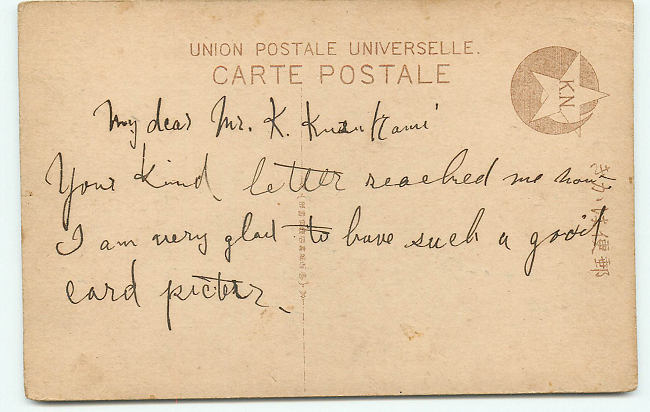 UNION POSTALE UNIVERSELLE.
CARTE POSTALE
K.N.
My dear Mr. K.
Your kind letter reached me now.
I am very glad to have such a good
card picter.